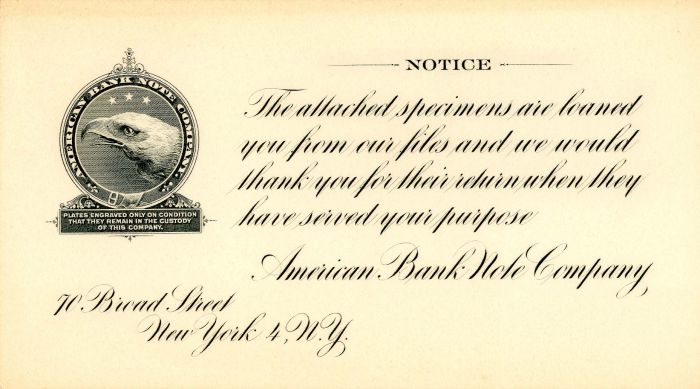 AMERICAN BANK NOTE COMPANY.
PLATES ENGRAVED ONLY ON CONDITION
THAT THEY REMAIN IN THE CUSTODY
OF THIS COMPANY.
NOTICE
The attached specimens are loaned
you from our files and we would
thank you for their return when they
have served your purpose
American Bank Note Company,
70 Broad Street
New York 4, N.Y.